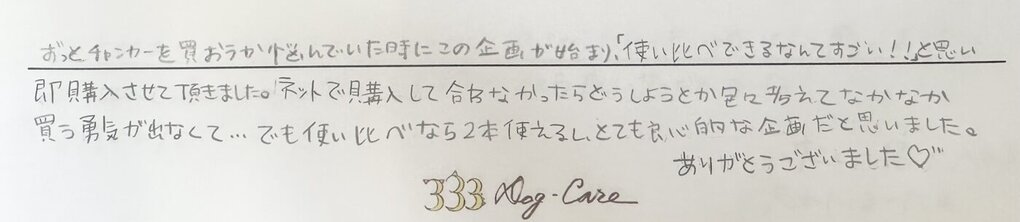 ずっとチャンカーを買おうか悩んでいた時にこの企画が始まり、「使い比べできるなんてすごい!!」と思い
即購入させて頂きました。ネットで購入して合わなかったらどうしようとか色々考えてなかなか
買う勇気が出なくて…でも使い比べなら2本使えるし、とても良心的な企画だと思いました。
ありがとうございました♡
333 Dog-Care